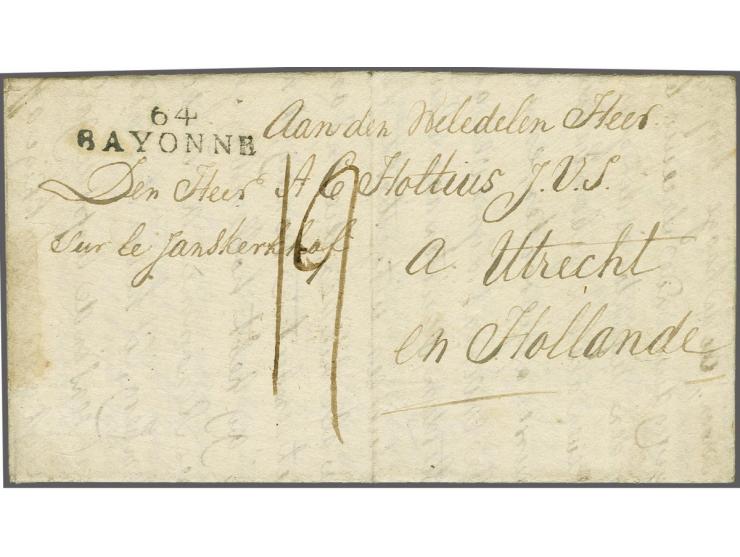 64
BAYONNE
Aan den Weledelen Heer
Den Heer A C Holtius J.V.S.
Sur le Janskerkhof
19
a Utrecht
en Hollande